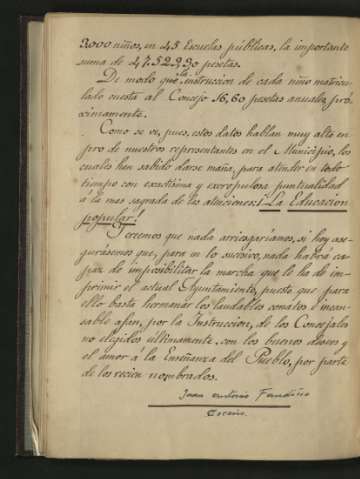 3.000 niños, en 45 Escuelas públicas, la importante
suma de 47.523,90 pesetas.
De modo que la instruccion de cada niño matricu-
lado cuesta al Concejo 16,60 pesetas anuales pró-
ximamente.
Como se ve, pues, estos datos hablan muy alto en
pro de nuestros representantes en el Municipio, los
cuales han sabido darse maña, para atender en todo
tiempo con exactisima y escrupulosa puntualidad
á la mas sagrada de las atenciones: ¡La Educacion
popular!
Y creemos que nada arriesgaríamos, si hoy ase-
gurásemos que, para en lo sucesivo, nada habrá ca-
páz de imposibilitar la marcha que le ha de im-
primir el actual Ayuntamiento, puesto que para
ello basta hermanar los laudables conatos é incan-
sable afan, por la Instruccion, de los Concejales
no elegidos últimamente con los buenos deseos y
el amor á la Enseñanza del Pueblo, por parte
de los recien nombrados.
Juan Antonio Fandiño